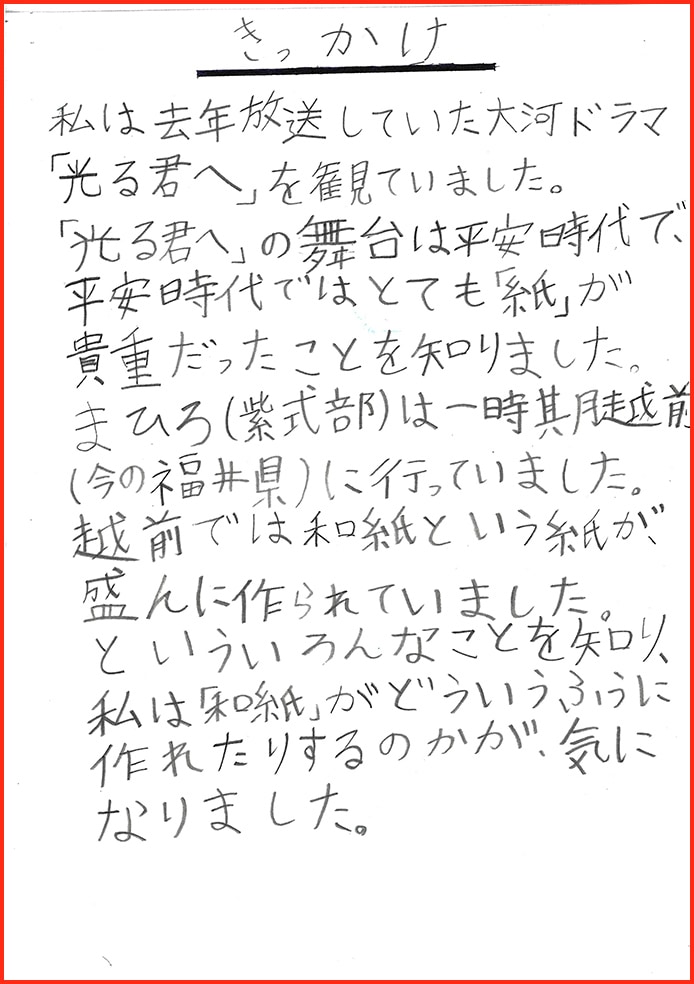 きっかけ
私は去年放送していた大河ドラマ
「光る君へ」を観ていました。
「光る君へ」の舞台は平安時代で、
平安時代ではとても「紙」が
貴重だったことを知りました。
まひろ(紫式部)は一時期越前
(今の福井県)に行っていました。
越前では和紙という紙が、
盛んに作られていました。
といういろんなことを知り、
私は「和紙」がどういうふうに
作れたりするのかが、気に
なりました。